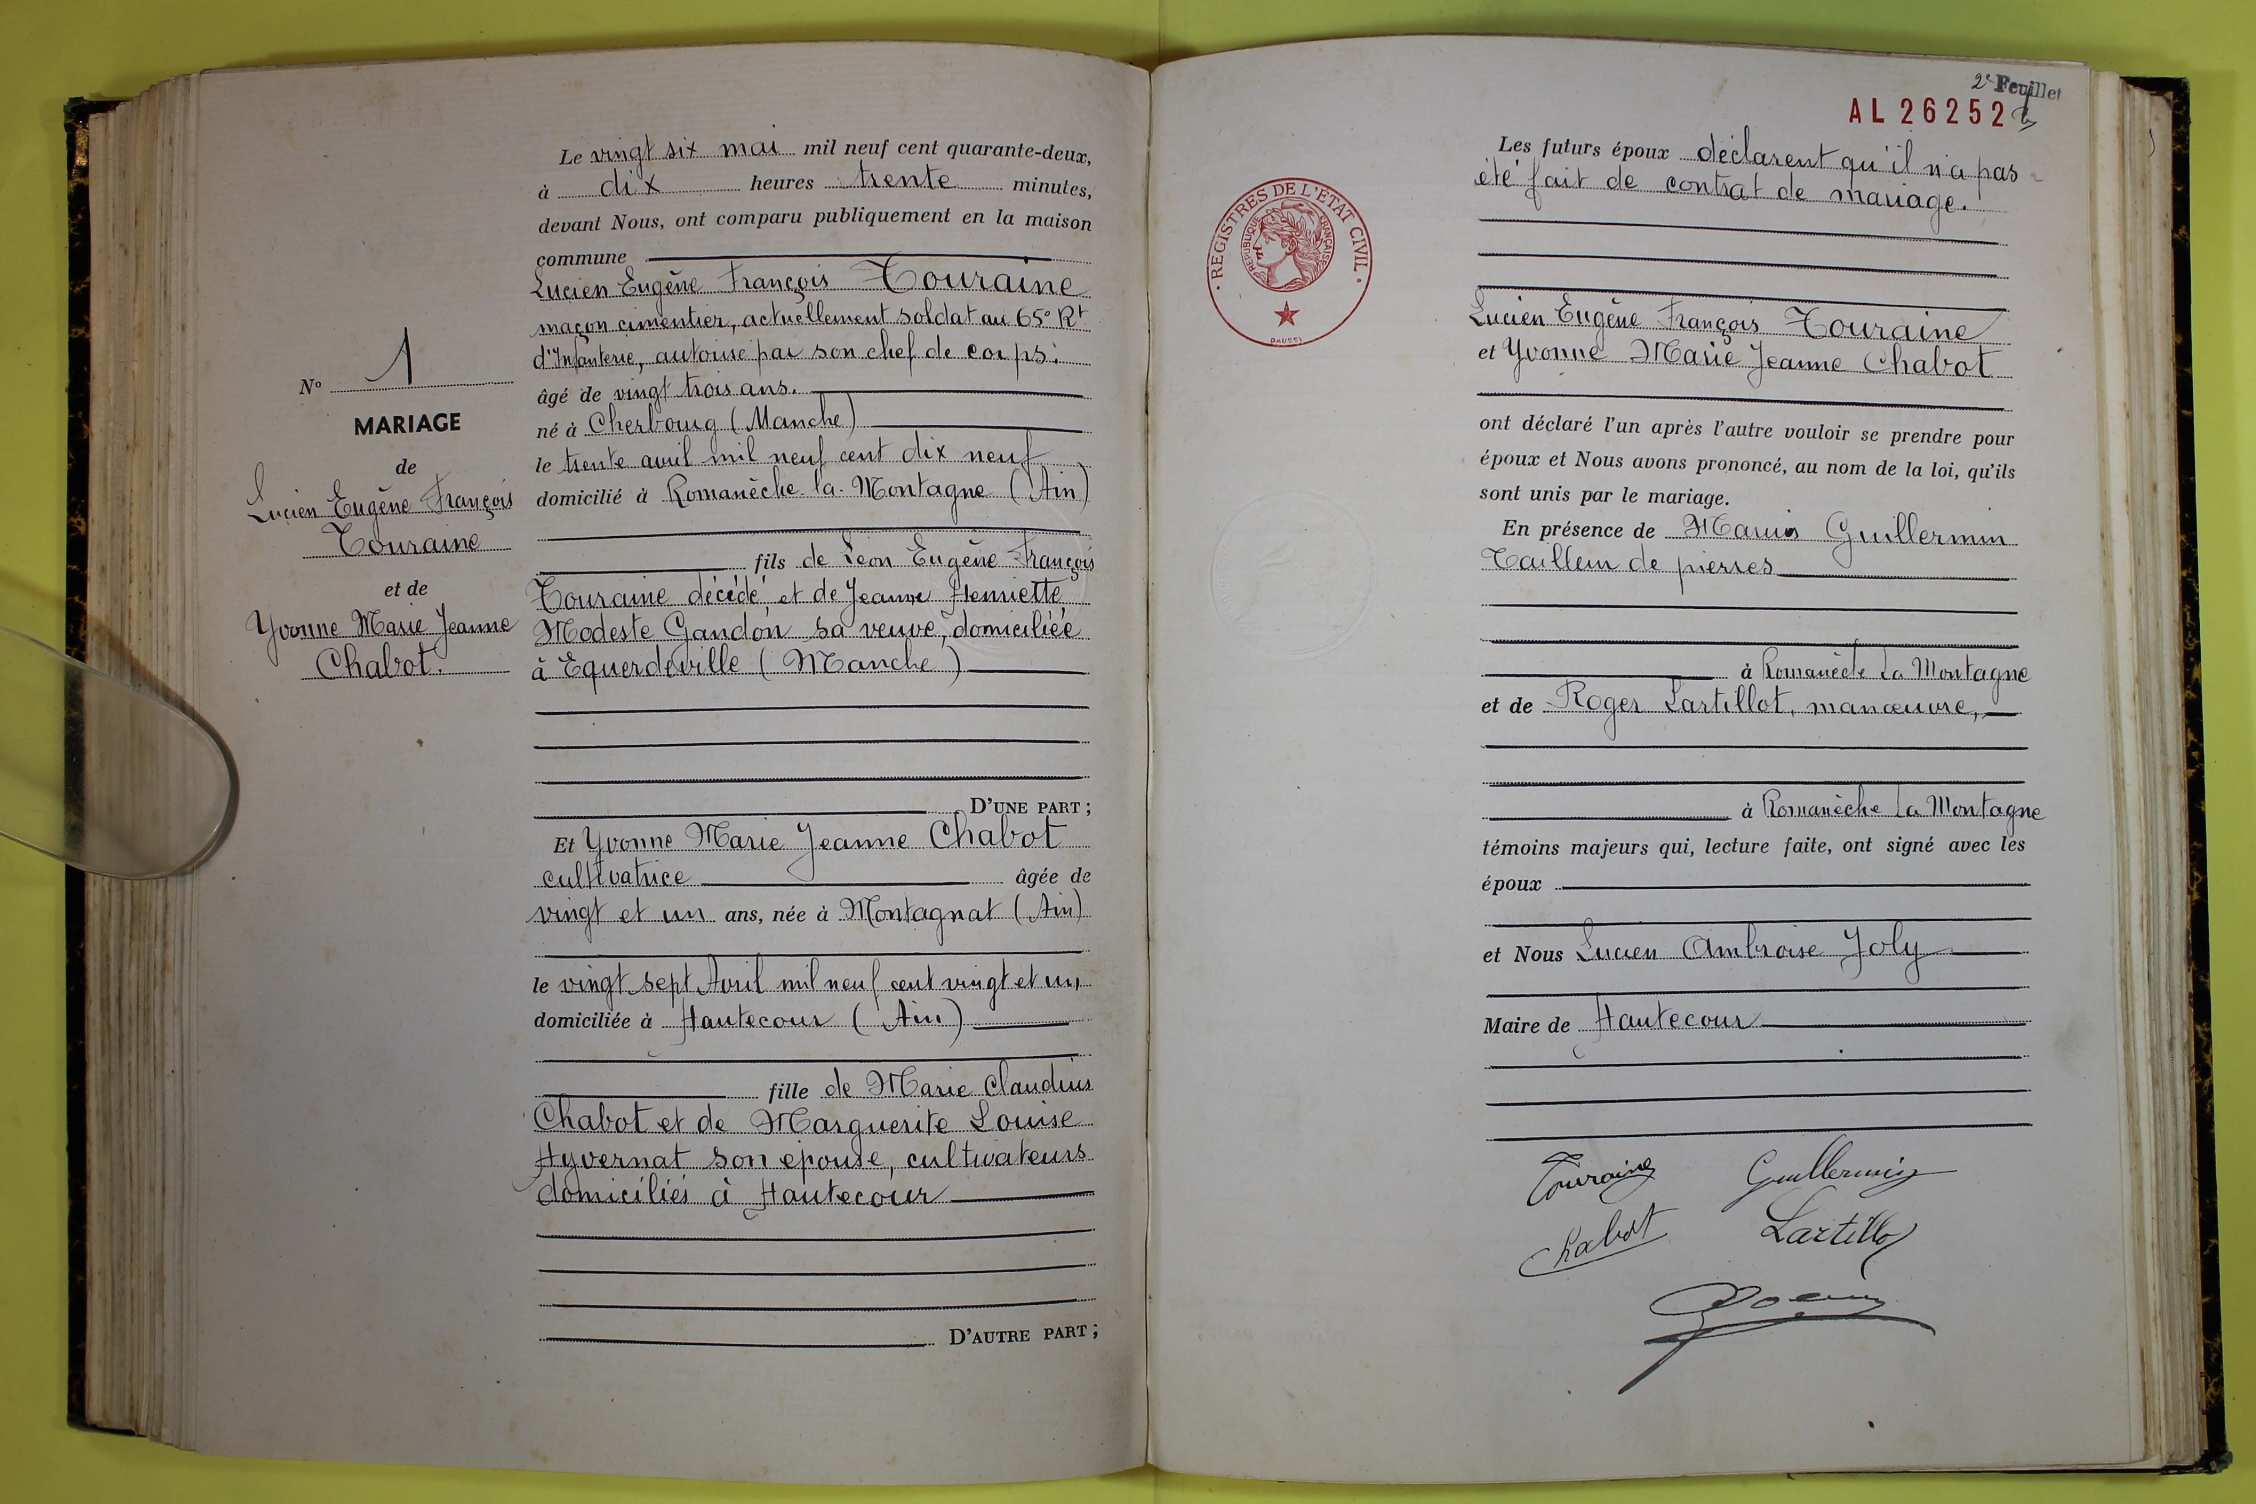 Le vingt six mai mil neuf cent quarante-deux,
à dix heures trente minutes,
devant Nous, ont comparu publiquement en la maison
commune
Lucien Eugène François Touraine
maçon cimentier, actuellement soldat au 65e Rt
d'Infanterie, autorisé par son chef de corps.
âgé de vingt trois ans.
né à Cherbourg (Manche)
le trente avril mil neuf cent dix neuf
domicilié à Romanèche-la-Montagne (Ain)
fils de Léon Eugène François
Touraine décédé, et de Jeanne Henriette
Modeste Gandon sa veuve, domiciliée
à Equerdeville (Manche)
D'UNE PART ;
Et Yvonne Marie Jeanne Chabot
cultivatrice âgée de
vingt et un ans, née à Montagnat (Ain)
le vingt sept Avril mil neuf cent vingt et un,
domiciliée à Hautecour (Ain)
fille de Marie Claudius
Chabot et de Marguerite Louise
Hyvernat son épouse, cultivateurs
domiciliés à Hautecour
D'AUTRE PART ;
No 1
MARIAGE
de
Lucien Eugène François
Touraine
et de
Yvonne Marie Jeanne
Chabot.
2e Feuillet
AL 26252
REGISTRES DE L'ETAT CIVIL
REPUBLIQUE FRANÇAISE
Les futurs époux déclarent qu'il n'a pas
été fait de contrat de mariage.
Lucien Eugène François Touraine
et Yvonne Marie Jeanne Chabot
ont déclaré l'un après l'autre vouloir se prendre pour
époux et Nous avons prononcé, au nom de la loi, qu'ils
sont unis par le mariage.
En présence de Marius Guillermin
Tailleur de pierres
à Romanèche La Montagne
et de Roger Lartillot, manœuvre,
à Romanèche La Montagne
témoins majeurs qui, lecture faite, ont signé avec les
époux
et Nous Lucien Ambroise Joly
Maire de Hautecour
Touraine Guillermin
Chabot Lartillot